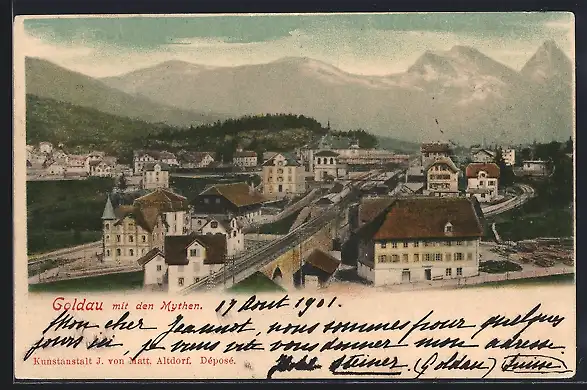 Goldau mit den Mythen.
17 Août 1901.
Mon cher Jeannot, nous sommes pour quelques
jours ici, je veux vite vous donner mon adresse
Kunstanstalt J. von Matt. Altdorf. Déposé.
Hôtel Steiner. (Goldau) Suisse